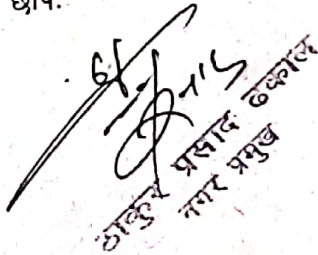 छाप.
ठाकुर प्रसाद ढकाल
नगर प्रमुख